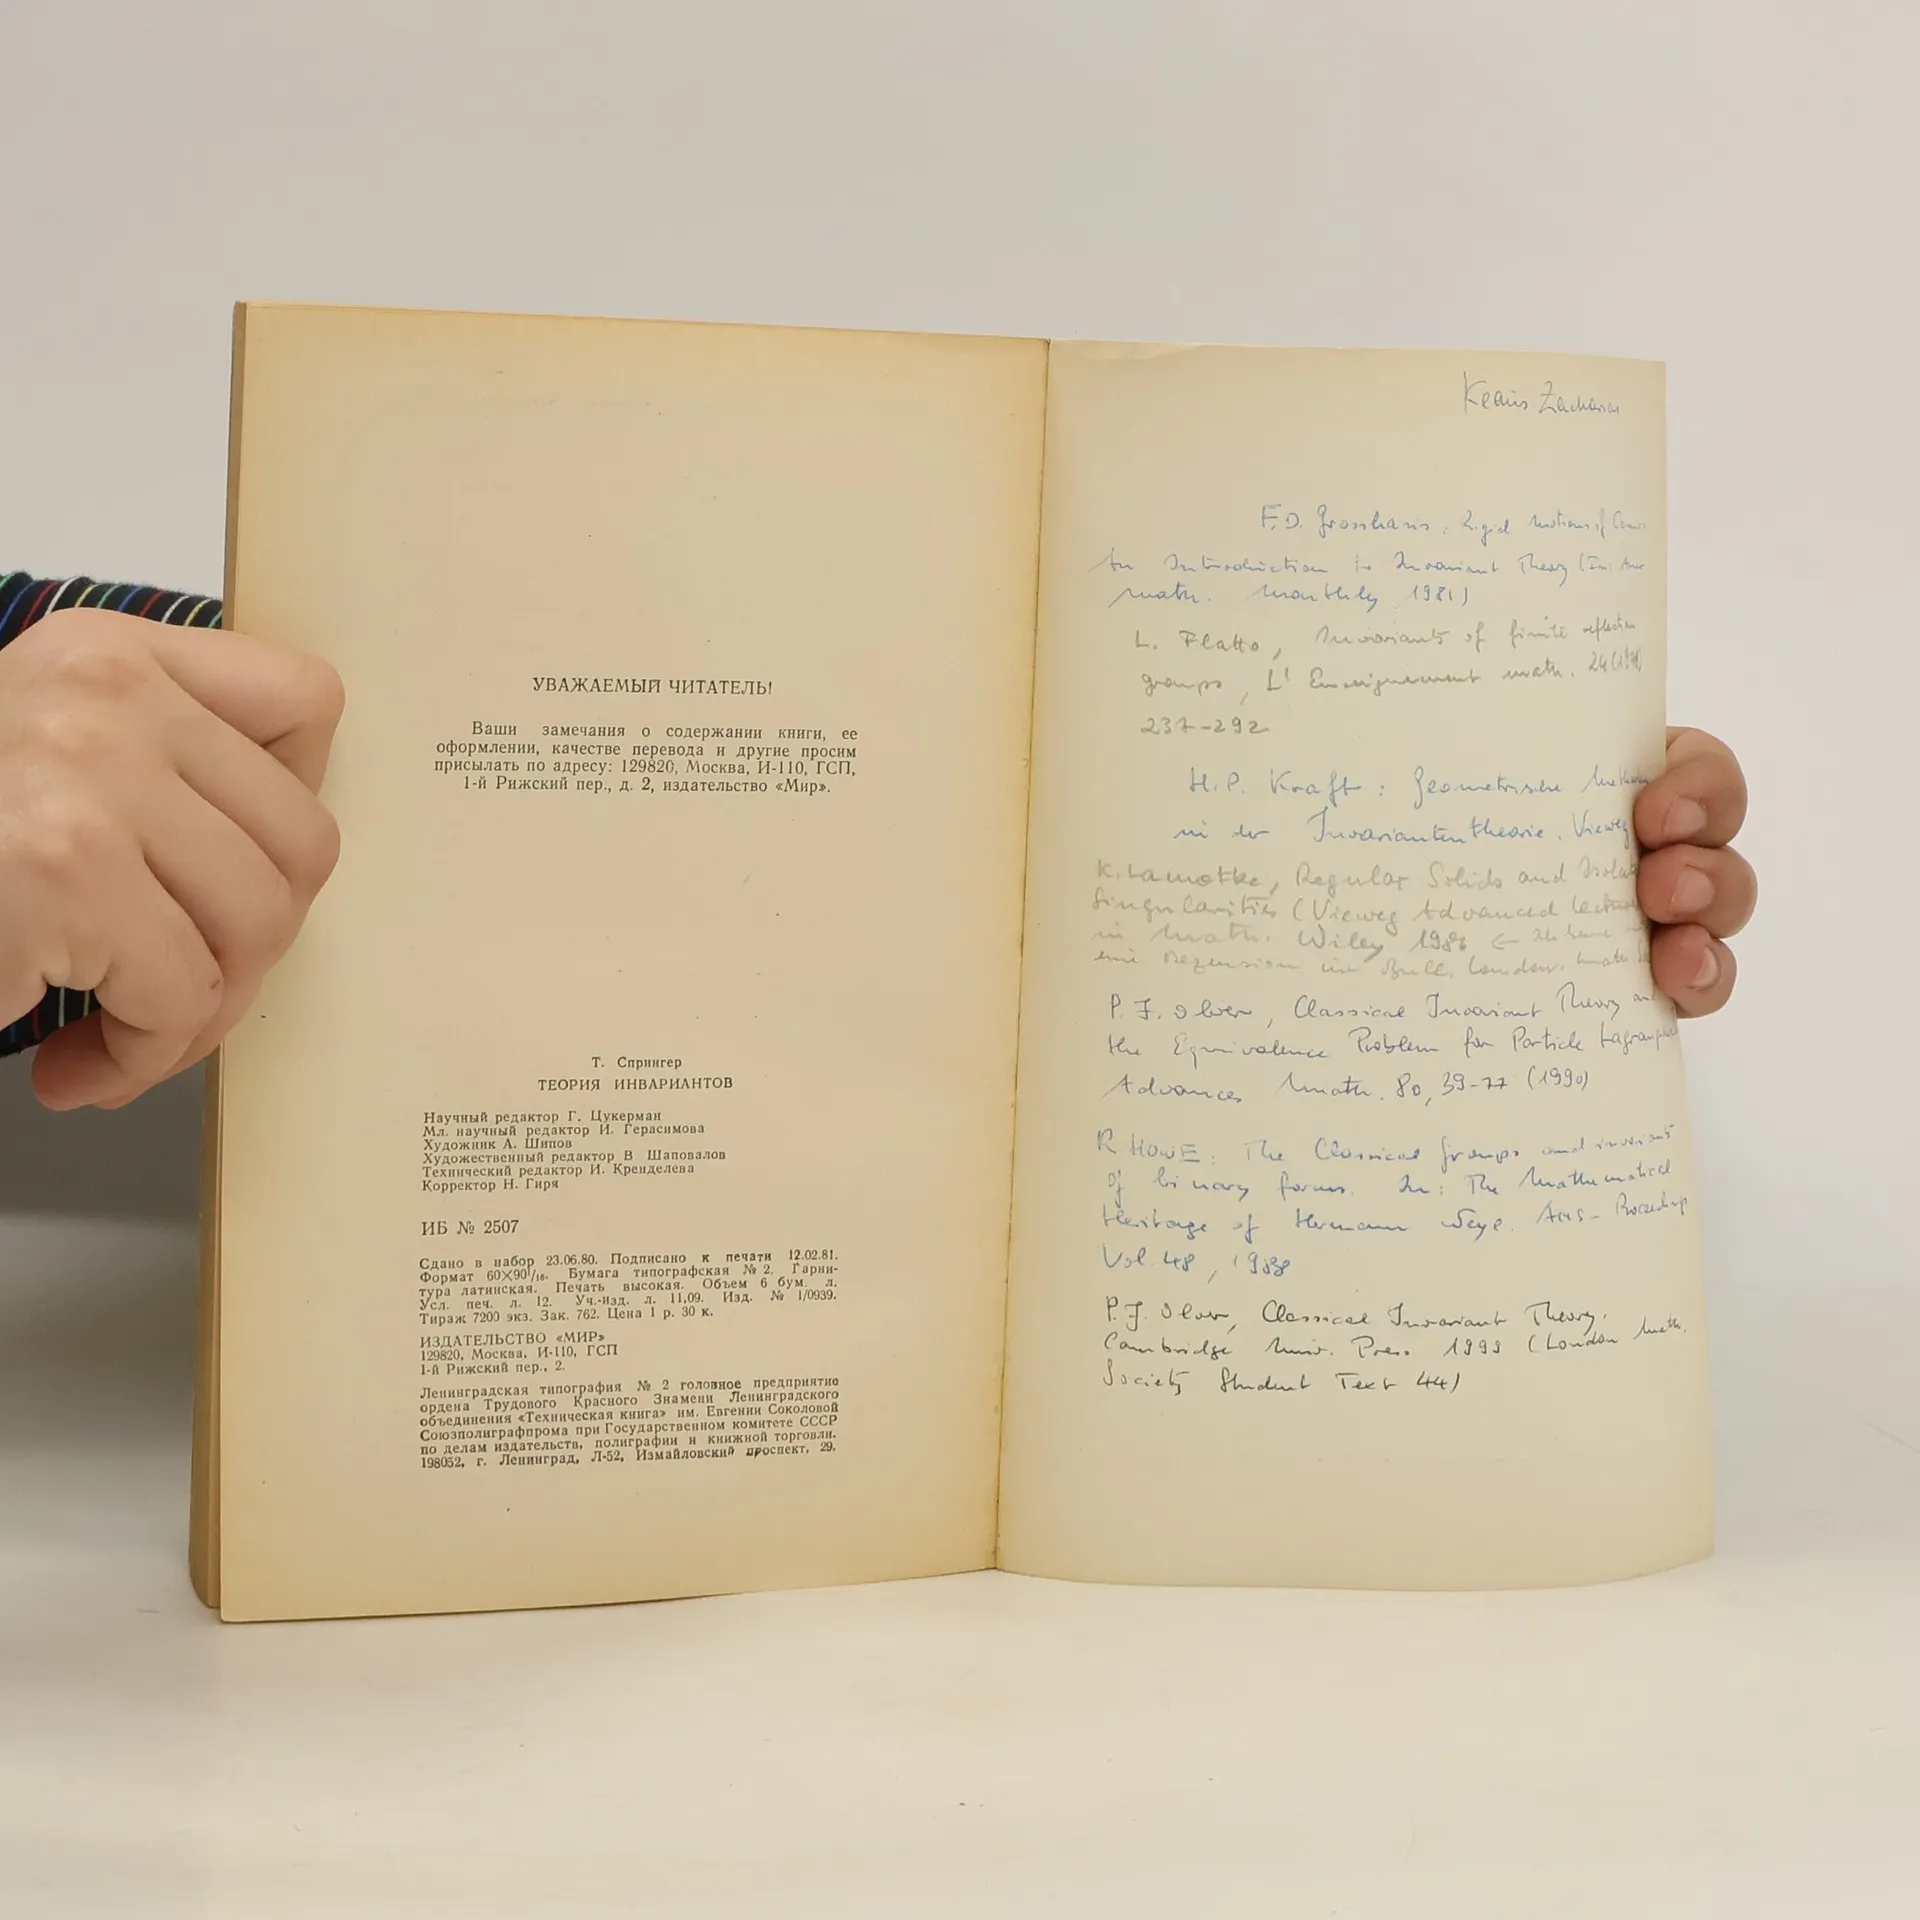 УВАЖАЕМЫЙ ЧИТАТЕЛЬ!
Ваши замечания о содержании книги, ее
оформлении, качестве перевода и другие просим
присылать по адресу: 129820, Москва, И-110, ГСП,
1-й Рижский пер., д. 2, издательство «Мир».
Т. Спрингер
ТЕОРИЯ ИНВАРИАНТОВ
Научный редактор Г. Цукерман
Мл. научный редактор И. Герасимова
Художник А. Шипов
Художественный редактор В Шаповалов
Технический редактор И. Кренделева
Корректор Н. Гиря
ИБ № 2507
Сдано в набор 23.06.80. Подписано к печати 12.02.81.
Формат 60×90¹/₁₆. Бумага типографская № 2. Гарни-
тура латинская. Печать высокая. Объем 6 бум. л.
Усл. печ. л. 12. Уч.-изд. л. 11,09. Изд. № 1/0939.
Тираж 7200 экз. Зак. 762. Цена 1 р. 30 к.
ИЗДАТЕЛЬСТВО «МИР»
129820, Москва, И-110, ГСП
1-й Рижский пер., 2.
Ленинградская типография № 2 головное предприятие
ордена Трудового Красного Знамени Ленинградского
объединения «Техническая книга» им. Евгении Соколовой
Союзполиграфпрома при Государственном комитете СССР
по делам издательств, полиграфии и книжной торговли.
198052, г. Ленинград, Л-52, Измайловский проспект, 29.
Klaus Zacharias
F.D. Grosshans: Rigid Motions of
An Introduction to Invariant Theory (In: Amer
Math. Monthly 1981)
L. Flatto, Invariants of finite reflection
groups, L'Enseignement math. 24 (1978)
237-292
H.P. Kraft: Geometrische Methoden
in der Invariantentheorie. Vieweg
K. Lamotke, Regular Solids and Isolated
Singularities (Vieweg Advanced Lectures
in Math. Wiley 1986 ←
eine Rezension im Bull. London. Math. Soc
P.J. Olver, Classical Invariant Theory and
the Equivalence Problem for Particle Lagrangians
Advances Math. 80, 39-77 (1990)
R HOWE: The Classical groups and invariants
of binary forms. In: The Mathematical
Heritage of Hermann Weyl. AMS- Proceedings
Vol. 48, 1988
P.J. Olver, Classical Invariant Theory.
Cambridge Univ. Press 1999 (London Math.
Society Student Text 44)